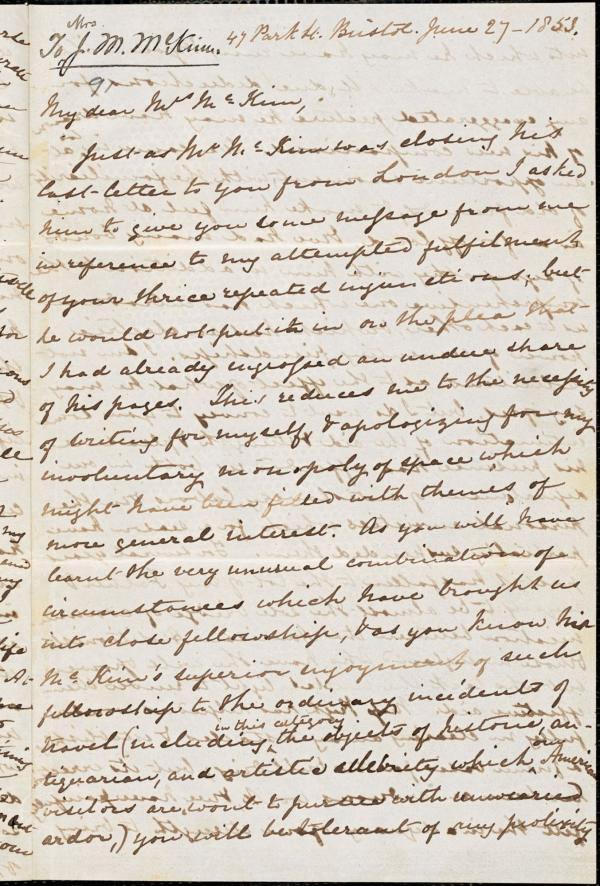 Mrs.
To J. M. McKim.
47 Park St. Bristol. June 27 - 1853.
9
My dear Mrs McKim,
Just as Mr McKim was closing his
last letter to you from London I asked
him to give you some message from me
in reference to my attempted fulfilment
of your thrice repeated injunctions; but
he would not put it in on the plea that
I had already ingrossed an undue share
of his pages. This reduces me to the necessity
of writing for myself, & apologizing for my
involuntary monopoly of space which
might have been filled with themes of
more general interest. As you will have
learnt the very unusual combination of
circumstances which have brought us
into close fellowship, & as you know Mr
McKim's superior injoyment of such
fellowship to the ordinary incidents of
travel (including in this category the objects of historic, an-
tiquarian, and artistic celebrity which American
visitors are wont to pursue with unwearied
ardor,) you will be tolerant of my prolixity